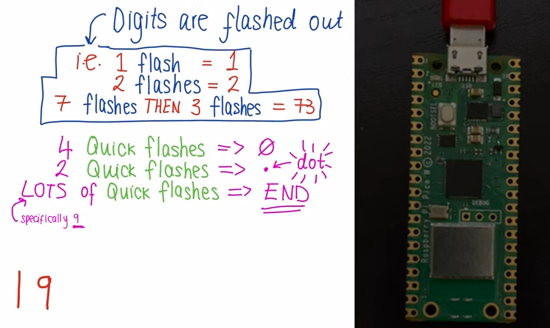 Digits are flashed out
i.e. 1 flash = 1
2 flashes = 2
7 flashes THEN 3 flashes = 73
4 Quick flashes => 0
2 Quick flashes => . ← dot
LOTS of Quick flashes => END
specifically 9
19
USB
BOOTSEL
Raspberry Pi Pico W © 2022
DEBUG